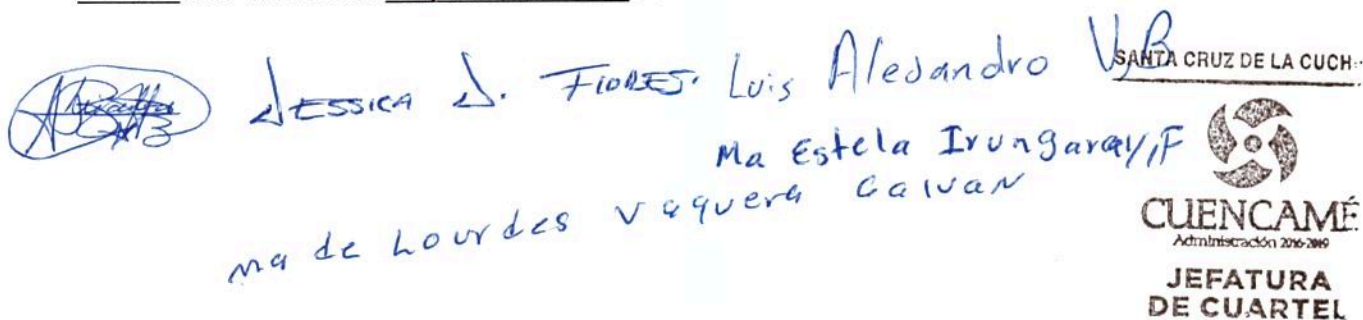 JESSICA D. FLORES. Luis Alejandro V,B
SANTA CRUZ DE LA CUCH
Ma Estela Irungaray,F
ma de Lourdes Vaquera Galvan
CUENCAMÉ
Administración 2016-2019
JEFATURA
DE CUARTEL